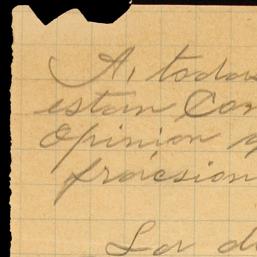 A, todas
estan Con
Opinion y
fracsion
La d